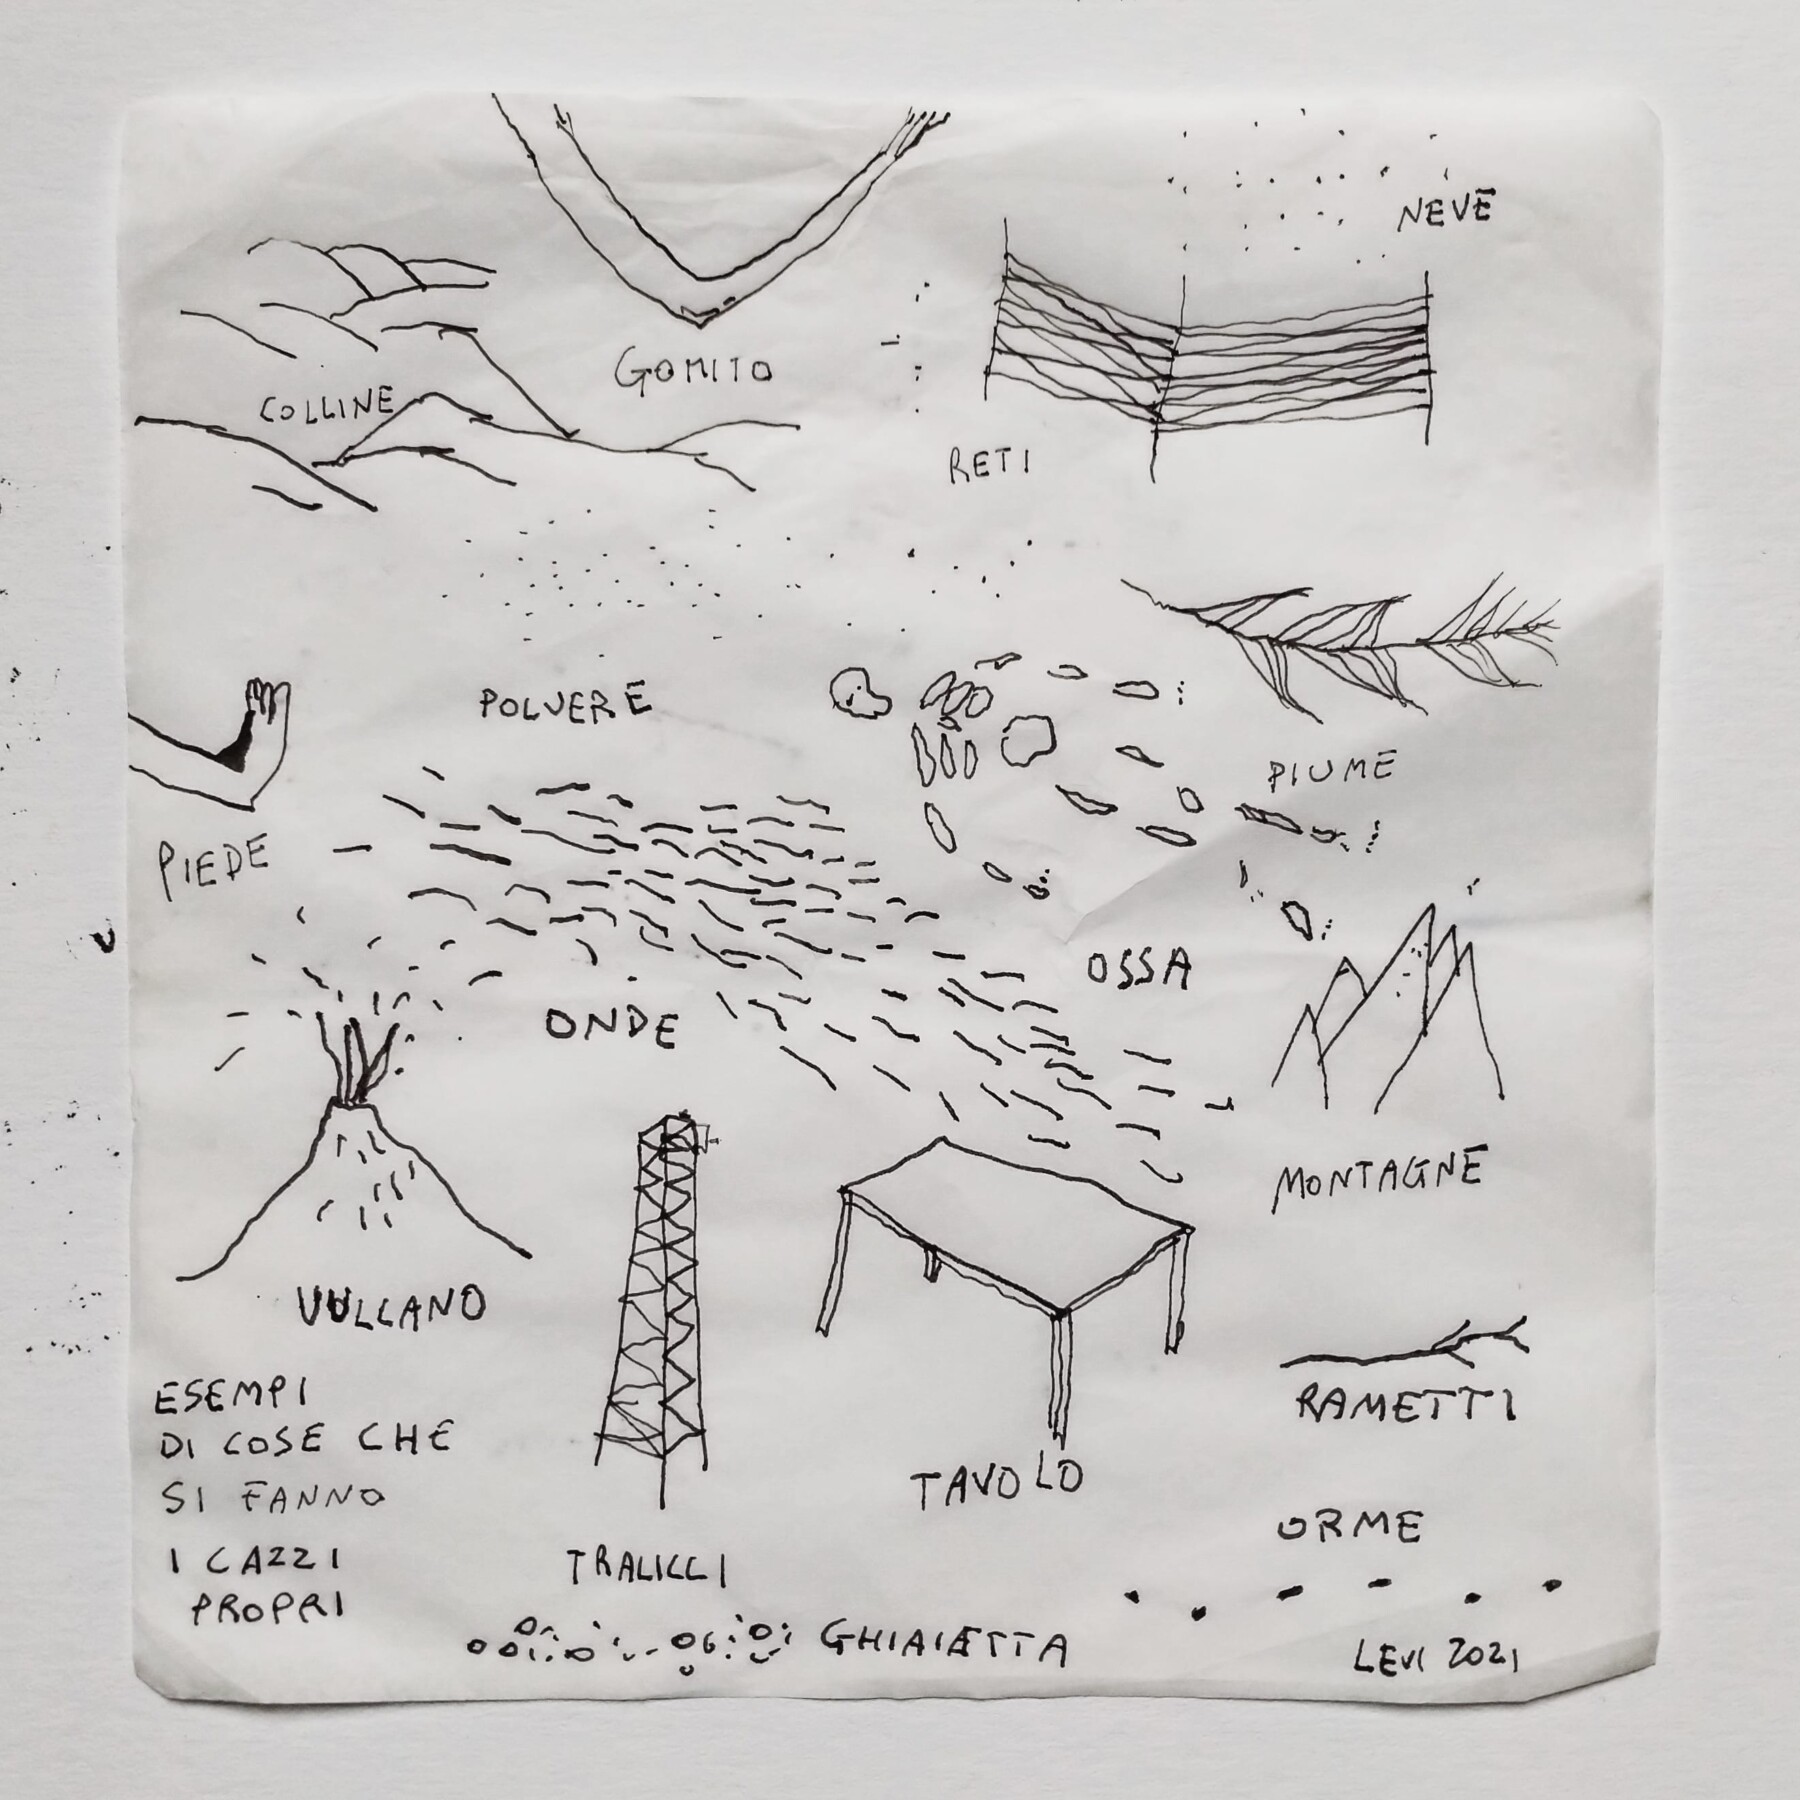 NEVE
GOMITO
COLLINE
RETI
POLVERE
PIUME
PIEDE
OSSA
ONDE
MONTAGNE
VULCANO
ESEMPI
DI COSE CHE
SI FANNO
I CAZZI
PROPRI
TRALICCI
TAVOLO
RAMETTI
ORME
GHIAIETTA
LEVI 2021